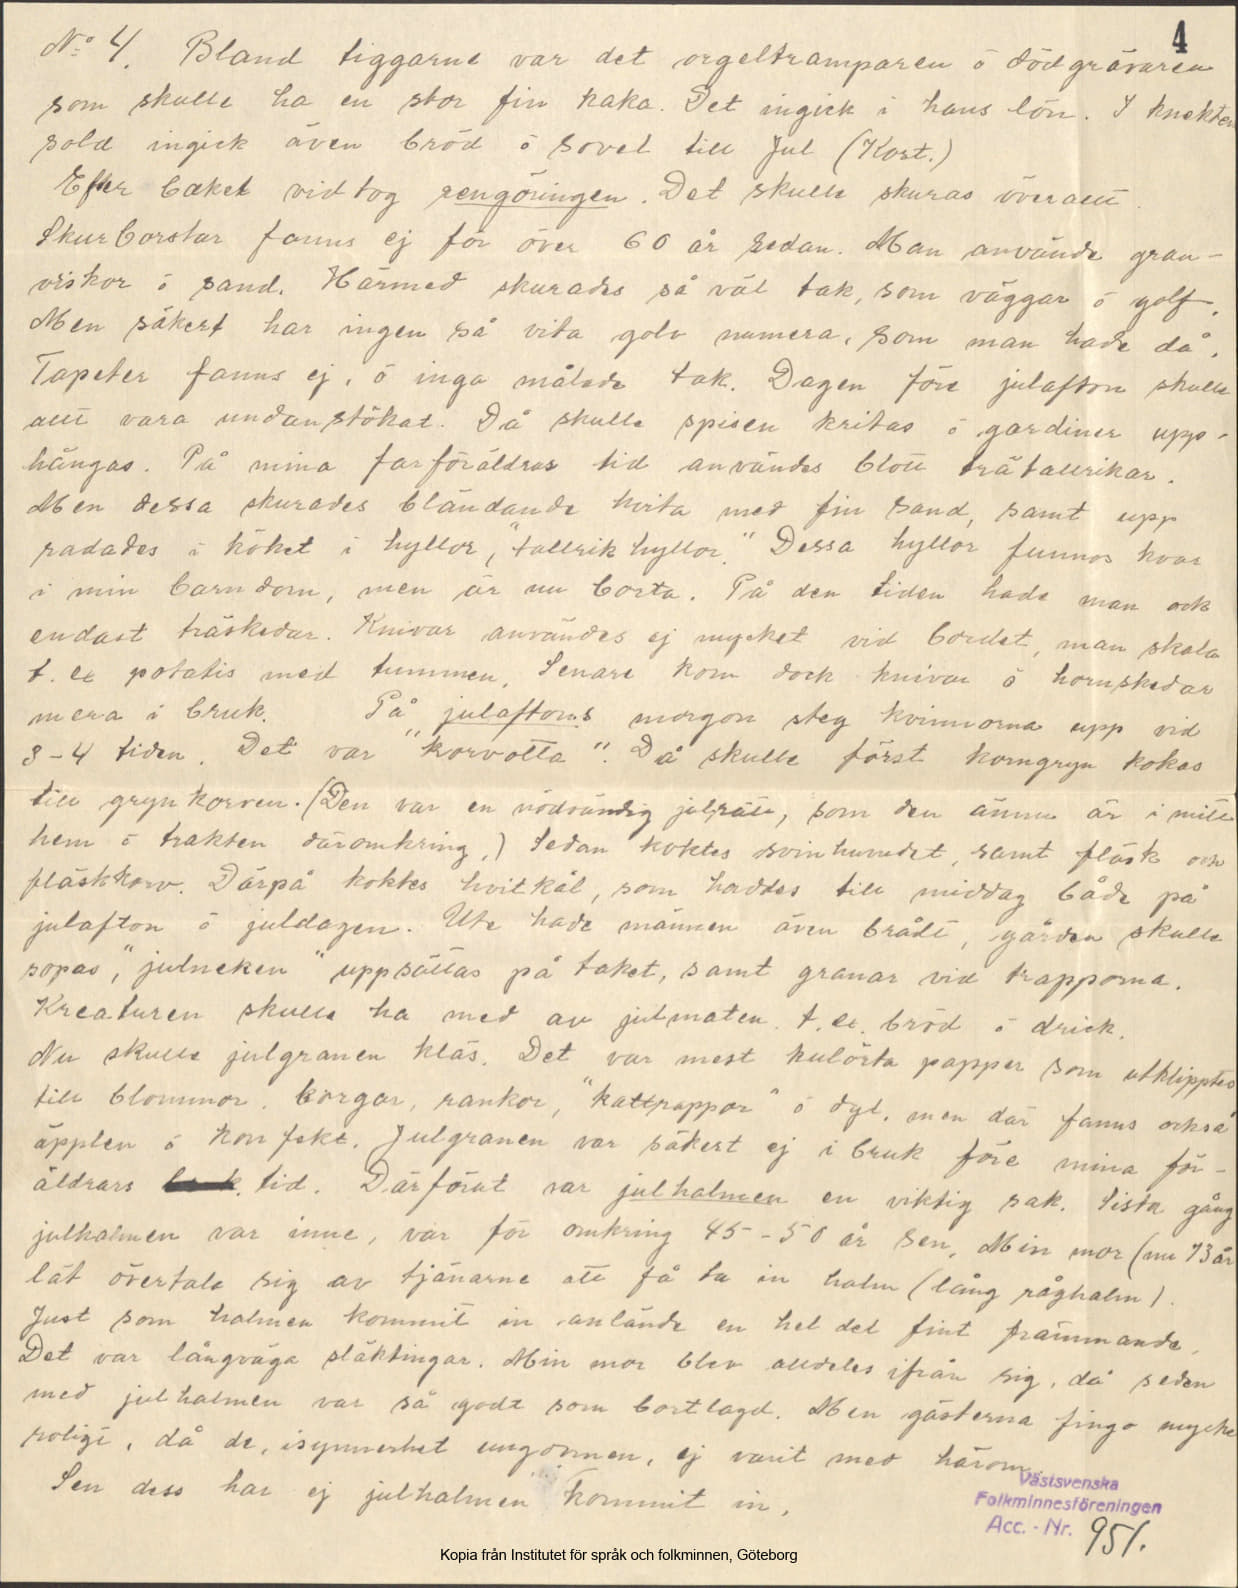 4
No 4. Bland tiggarne var det orgeltramparen ö dödgrävaren
som skulle ha en stor fin kaka. Det ingick i hans lön. I knekten
sold ingick även bröd ö sovel till Jul (Kost.)
Efter baket vidtog rengöringen. Det skulle skuras överallt.
Skurborstar fanns ej för över 60 år sedan. Man använde gran-
viskor ö sand. Härmed skurades så väl tak, som väggar ö golf.
Men säkert har ingen så vita golv numera, som man hade då.
Tapeter fanns ej, ö inga målade tak. Dagen före julafton skulle
allt vara undanstökat. Då skulle spisen kritas ö gardiner upp-
hängas. På mina farföräldras tid användes blott trätallrikar.
Men dessa skurades bländande hvita med fin sand, samt upp
radades i köket i hyllor, "tallrikhyllor." Dessa hyllor funnos kvar
i min barndom, men är nu borta. På den tiden hade man ock
endast träskedar. Knivar användes ej mycket vid bordet, man skala
t. ex potatis med tummen. Senare kom dock knivar ö hornskedar
mera i bruk. På julaftons morgon steg kvinnorna upp vid
3-4 tiden. Det var "korvotta". Då skulle först korngryn kokas
till grynkorven. (Den var en nödvändig julrätt, som den ännu är i mitt
hem ö trakten däromkring.) Sedan koktes svinhuvudet, samt fläsk och
fläskkorv. Därpå koktes hvitkål, som haddes till middag både på
julafton ö juldagen. Ute hade männen även brådt, gården skulle
sopas, "julneken" uppsättas på taket, samt granar vid trapporna.
Kreaturen skulle ha med av julmaten. t. ex. bröd ö drick.
Nu skulle julgranen kläs. Det var mest kulörta papper som utklipptes
till blommor, korgar, rankor, "kattrappor" ö dyl. men där fanns också
äpplen ö konfekt. Julgranen var säkert ej i bruk före mina för-
äldrars tid. Därförut var julhalmen en viktig sak. Sista gång
julhalmen var inne, var för omkring 45-50 år sen. Min mor (nu 73 år
lät övertala sig av tjänarne att få ta in halm (lång råghalm).
Just som halmen kommit in anlände en hel del fint främmande.
Det var långväga släktingar. Min mor blev alldeles ifrån sig, då seden
med julhalmen var så godt som bortlagd. Men gästerna fingo mycke
roligt, då de, isynnerhet ungdomen, ej varit med härom.
Sen dess har ej julhalmen kommit in.
Västsvenska
Folkminnesföreningen
Acc. - Nr. 951.
Kopia från Institutet för språk och folkminnen, Göteborg